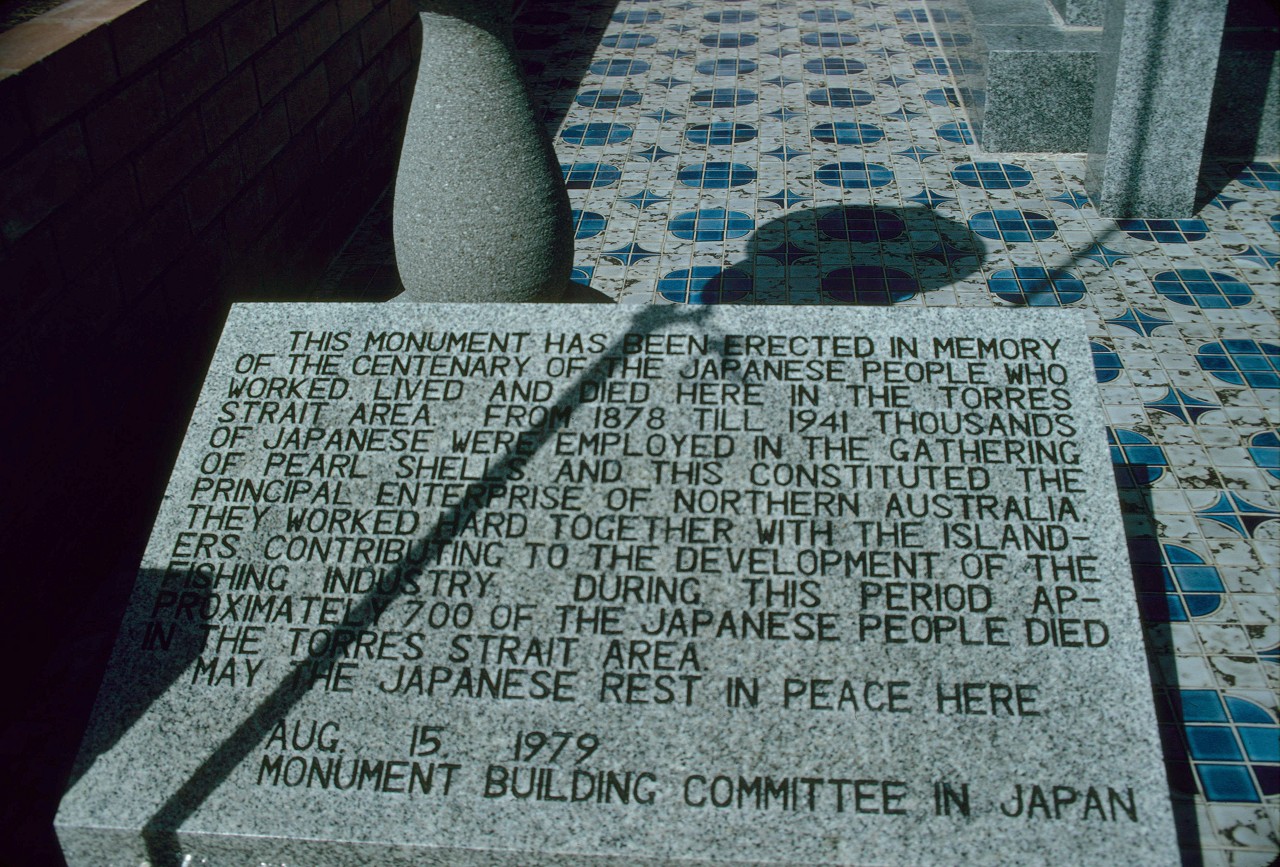 THIS MONUMENT HAS BEEN ERECTED IN MEMORY
OF THE CENTENARY OF THE JAPANESE PEOPLE WHO
WORKED LIVED AND DIED HERE IN THE TORRES
STRAIT AREA. FROM 1878 TILL 1941 THOUSANDS
OF JAPANESE WERE EMPLOYED IN THE GATHERING
OF PEARL SHELLS AND THIS CONSTITUTED THE
PRINCIPAL ENTERPRISE OF NORTHERN AUSTRALIA.
THEY WORKED HARD TOGETHER WITH THE ISLAND-
ERS CONTRIBUTING TO THE DEVELOPMENT OF THE
FISHING INDUSTRY. DURING THIS PERIOD AP-
PROXIMATELY 700 OF THE JAPANESE PEOPLE DIED
IN THE TORRES STRAIT AREA.
MAY THE JAPANESE REST IN PEACE HERE
AUG. 15 1979
MONUMENT BUILDING COMMITTEE IN JAPAN